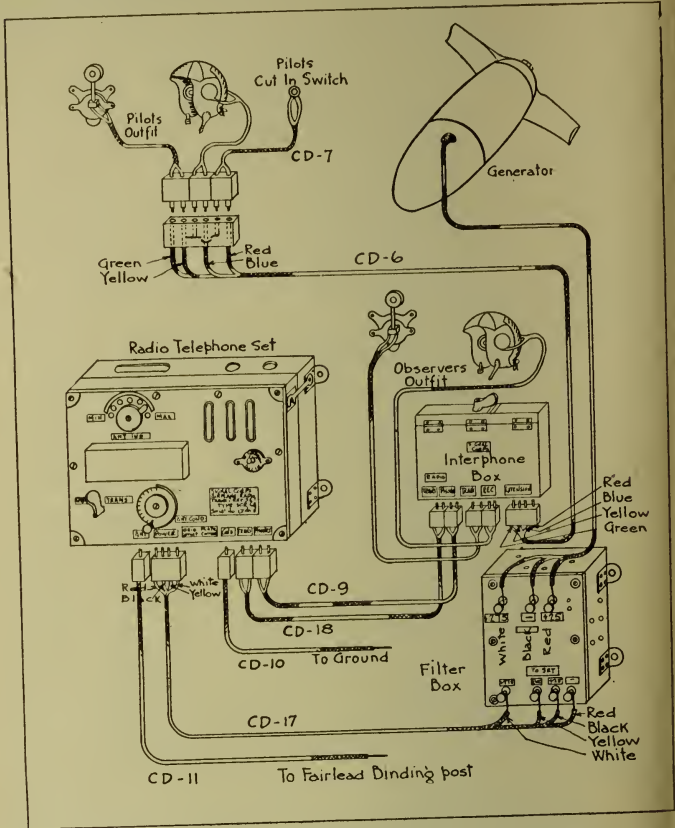 Pilots
Cut In Switch
Pilots
Outfit
CD-7
Generator
Green
Yellow
Red
Blue
CD-6
Radio Telephone Set
Observers
Outfit
MIN
MAX
Interphone
Box
TRANS
Red
Blue
Yellow
Green
Red
Black
White
Yellow
CD-9
CD-18
CD-10
To Ground
+275
-
+25
White
Black
Red
TO SET
Filter
Box
CD-17
Red
Black
Yellow
White
CD-11
To Fairlead Binding post